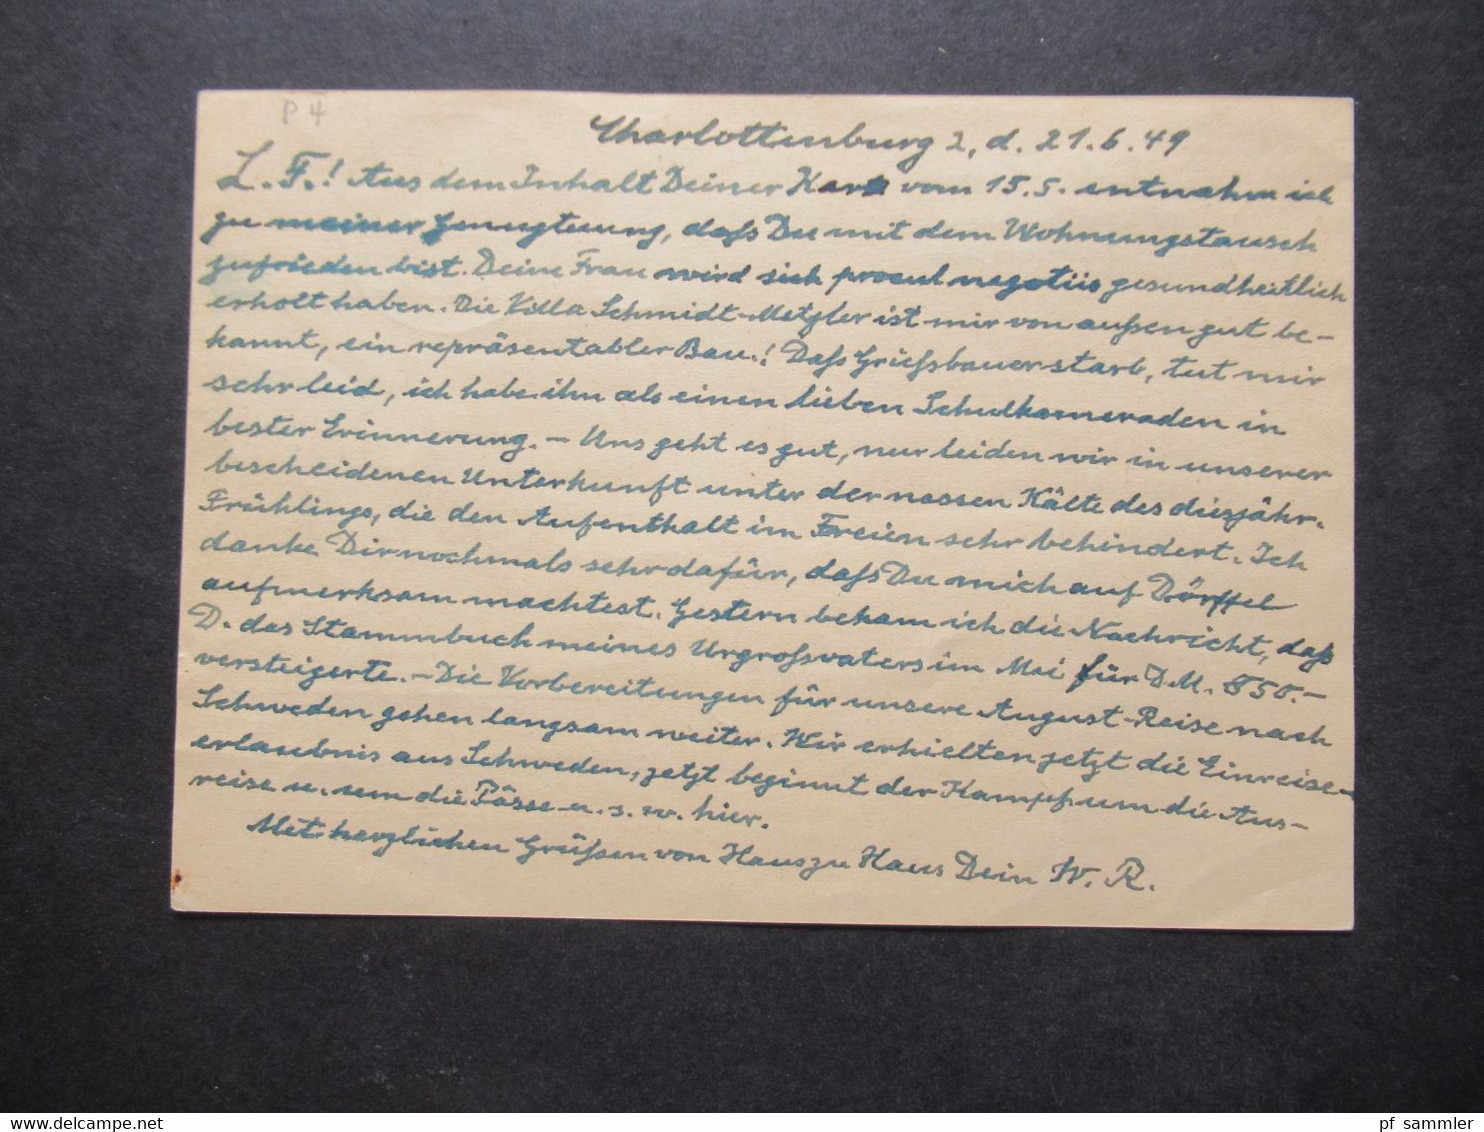 P 4
Charlottenburg 2, d. 21.6.49
L. F.! Aus dem Inhalt Deiner Karte vom 15.5. entnehm ich
zu meiner Genugtuung, daß Du mit dem Wohnungstausch
zufrieden bist. Deine Frau wird sich procul negotiis gesundheitlich
erholt haben. Die Villa Schmidt-Metzler ist mir von außen gut be-
kannt, ein repräsentabler Bau.! Daß Grießbauer starb, tut mir
sehr leid, ich habe ihn als einen lieben Schulkameraden in
bester Erinnerung. – Uns geht es gut, nur leiden wir in unserer
bescheidenen Unterkunft unter der nassen Kälte des diesjähr.
Frühlings, die den Aufenthalt im Freien sehr behindert. Ich
danke Dir nochmals sehr dafür, daß Du mich auf Dörffel
aufmerksam machtest. Gestern bekam ich die Nachricht, daß
D. das Stammbuch meines Urgroßvaters im Mai für D.M. 550.–
versteigerte. – Die Vorbereitungen für unsere August-Reise nach
Schweden gehen langsam weiter. Wir erhielten jetzt die Einreise-
erlaubnis aus Schweden, jetzt beginnt der Kampf um die Aus-
reise u. um die Pässe u. s. w. hier.
Mit herzlichen Grüßen von Haus zu Haus Dein W. R.
www.delcampe.net
pf_sammler